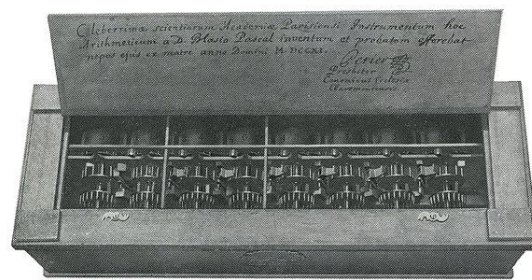 Celiberrimæ scientiarum Academiæ Parisiensi Instrumentum hoc
Arithmeticum a D. Blasio Pascal inventum et probatum offerebat
nepos ejus ex matre anno Domini M.DCCXI.
Perier
Presbiter
Canonicus Ecclesiæ
Claromontensis